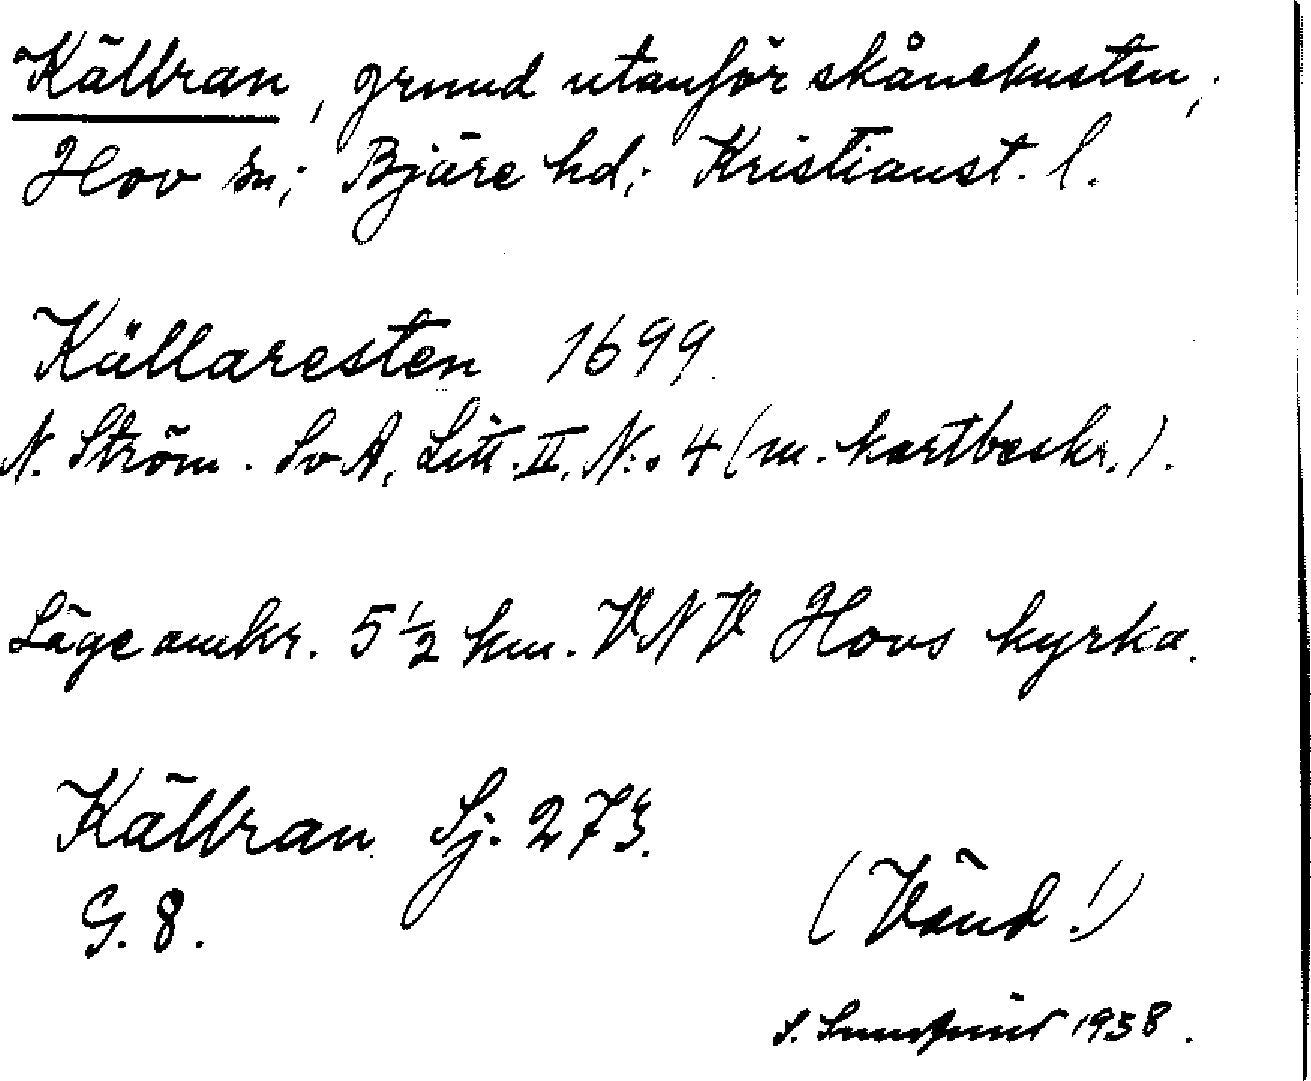 Källran, grund utanför skånekusten,
Hov sn; Bjäre hd; Kristianst. l.
Källaresten 1699.
N. Ström. SvA, Litt. II. N:o 4 (m. kartbeskr.).
Läge omkr. 5 1/2 km. VNV Hovs kyrka.
Källran Sj. 273.
G. 8.
(Vänd!)
S. 1938.